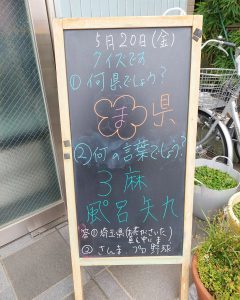 5月20日(金)
クイズです
①何県でしょう?
ま 県
②何の言葉でしょう?
3 麻
風呂 矢九
答①埼玉県(花がさいた
真ん中にま)
②さんま プロ野球